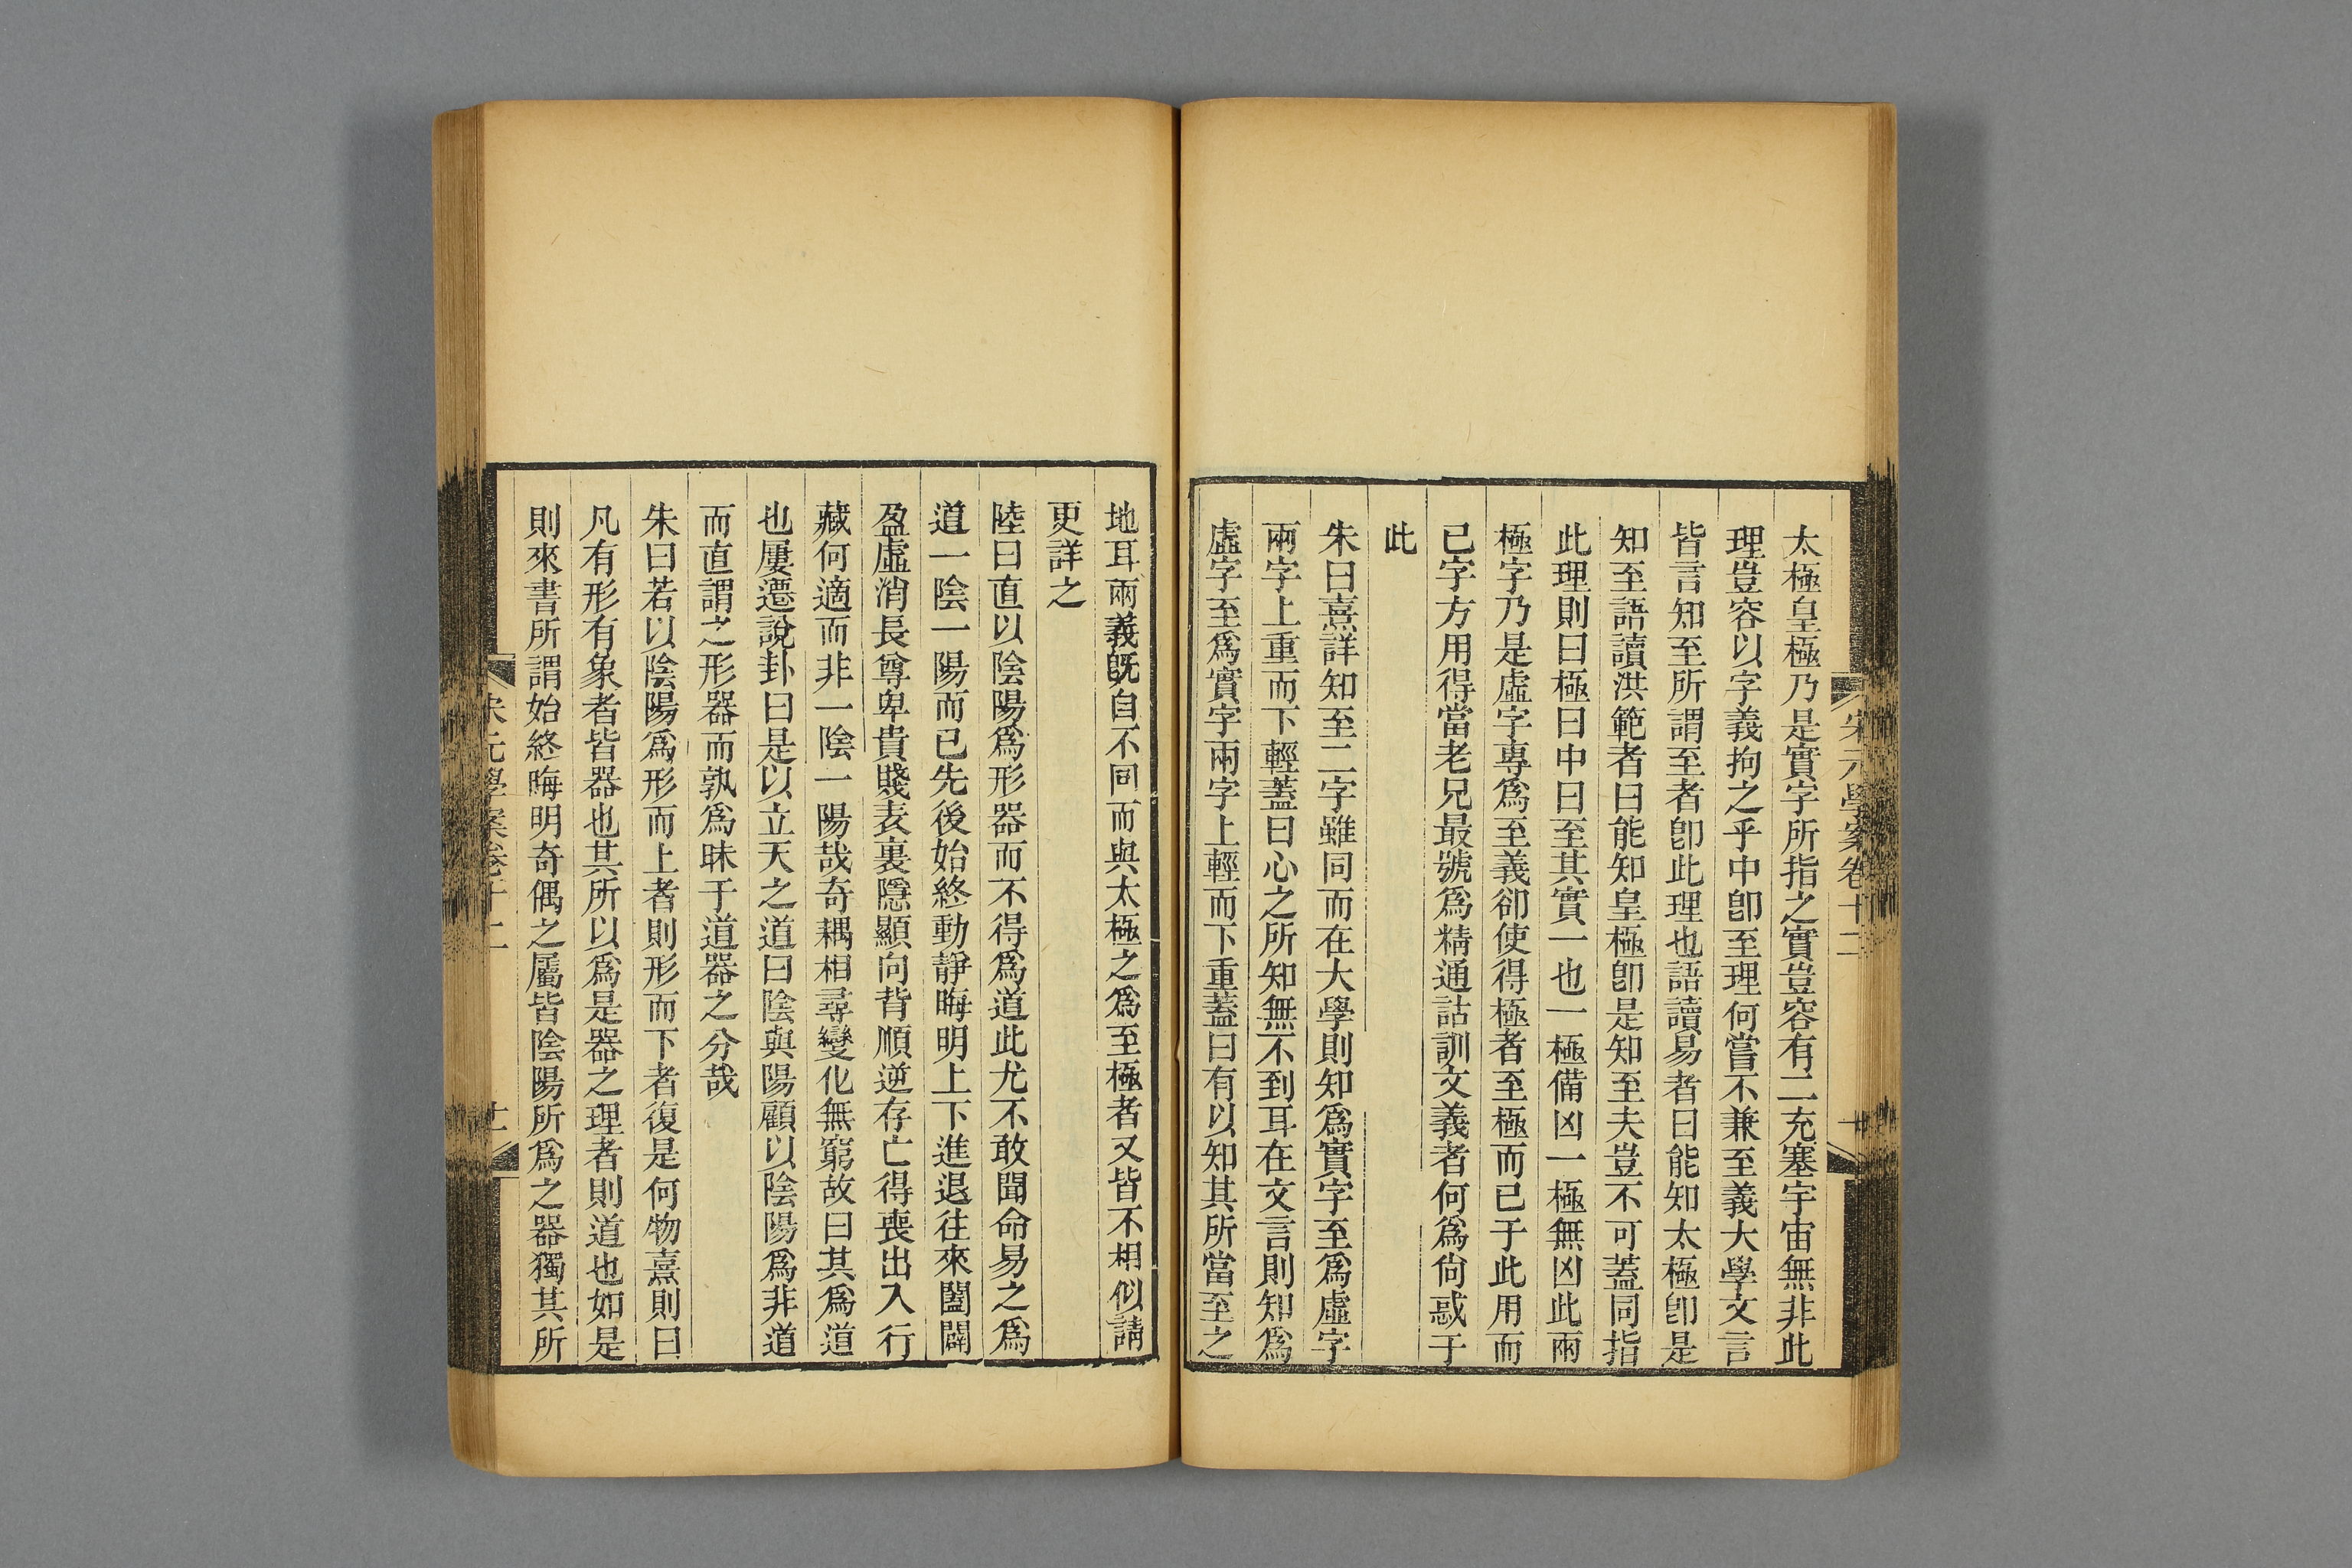 太極皇極乃是實字所指之實豈容有二充塞宇宙無非此
理豈容以字義拘之乎中卽至理何嘗不兼至義大學文言
皆言知至所謂至者卽此理也語讀易者曰能知太極卽是
知至語讀洪範者曰能知皇極卽是知至夫豈不可蓋同指
此理則曰極曰中曰至其實一也一極備凶一極無凶此兩
極字乃是虛字專爲至義卻使得極者至極而已于此用而
已字方用得當老兄最號爲精通詁訓文義者何爲尙惑于
此
朱曰熹詳知至二字雖同而在大學則知爲實字至爲虛字
兩字上重而下輕蓋曰心之所知無不到耳在文言則知爲
虛字至爲實字兩字上輕而下重蓋曰有以知其所當至之
宋元學案卷十二
地耳兩義旣自不同而與太極之爲至極者又皆不相似請
更詳之
陸曰直以陰陽爲形器而不得爲道此尤不敢聞命易之爲
道一陰一陽而已先後始終動靜晦明上下進退往來闔闢
盈虛消長尊卑貴賤表裏隱顯向背順逆存亡得喪出入行
藏何適而非一陰一陽哉奇耦相尋變化無窮故曰其爲道
也屢遷說卦曰是以立天之道曰陰與陽顧以陰陽爲非道
而直謂之形器而孰爲昧于道器之分哉
朱曰若以陰陽爲形而上者則形而下者復是何物熹則曰
凡有形有象者皆器也其所以爲是器之理者則道也如是
則來書所謂始終晦明奇偶之屬皆陰陽所爲之器獨其所
宋元學案卷十二